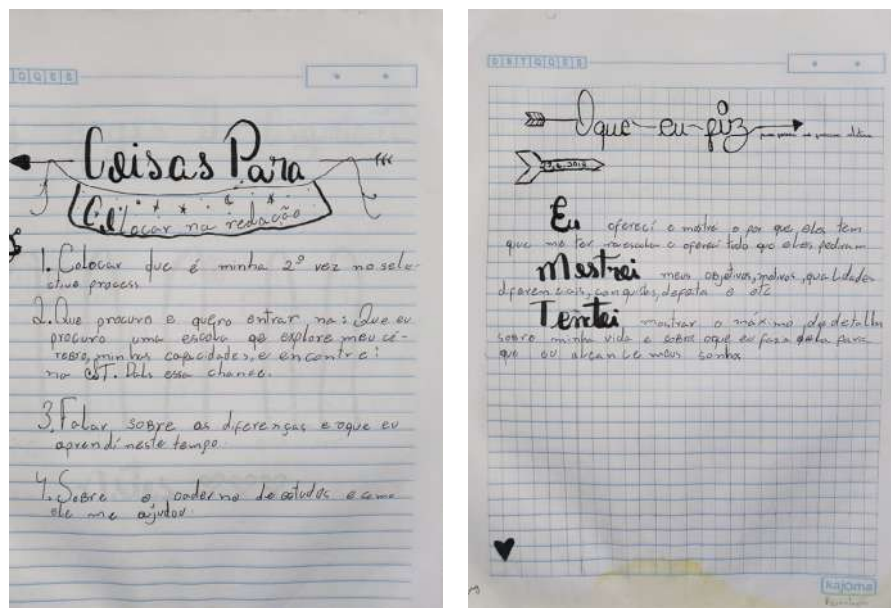 Coisas Para
Colocar na redação
1. Colocar que é minha 2ª vez no sele-
ctivo process
2. Que procuro e quero entrar na: Que eu
procuro uma escola qe explore meu cé-
rebro, minhas capacidades, e encontrei
na EST. essa chance.
3. Falar sobre as diferenças e oque eu
aprendí neste tempo
4. Sobre o caderno de estudos e como
ele me ajudou
DSTQQSS
Oque eu fiz
Eu oferecí e mostrei o por que eles tem
que me ter e oferecí tudo que eles pediram
Mostrei meus objetivos, motivos, qualidades
diferenciais, conquistas, defeitos e etc
Tentei mostrar o máximo de detalhe
sobre minha vida e sobre oque eu faço dela para
que eu alcance meus sonhos.
kajoma